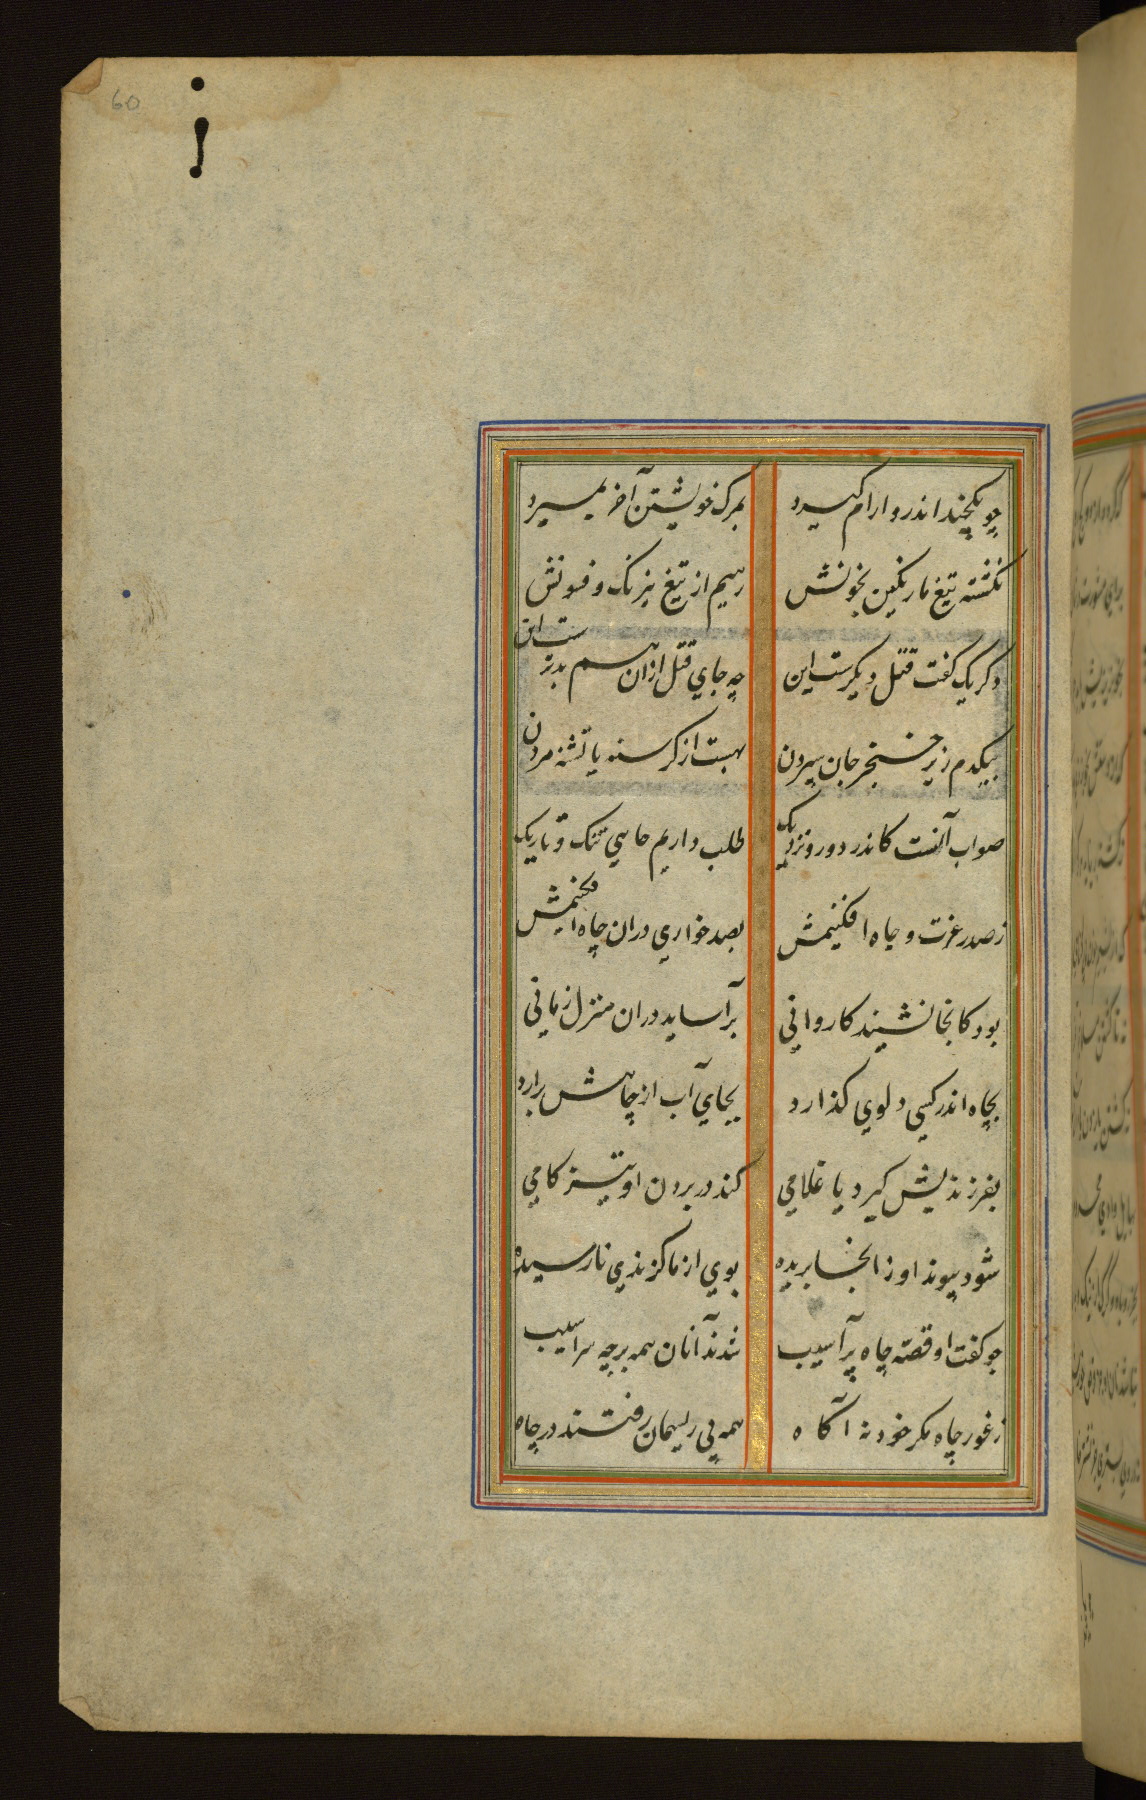 60
چو یکچند اندرو ارام کیرد بمرک خویشتن آخر بمیرد
نکشته تیغ ما رنکین بخونش رهیم از تیغ نیرنک و فسونش
دکر یک کفت قتل دیکرست این چه جاي قتل ازان هم بدترست این
بیکدم زیر خنجر جان سپردن بهست از کرسنه یا تشنه مردن
صواب آنست کاندر دور و نزدیک طلب داریم چاهي تنک و تاریک
ز صدر عزت و جاه افکنیمش بصد خواري دران چاه افکنیمش
بود کانجا نشیند کارواني برآساید دران منزل زماني
بچاه اندر کسي دلوي کذارد بجاي آب از چاهش برارد
بفرزندیش کیرد یا غلامي کند در بردن او تیز کامي
شود پیوند او زانجا بریده بوي از ما کزندي نارسیده
چو کفت او قصه چاه پر آسیب شدند آنان همه بر چه سراسیب
ز غور چاه مکر خود نه آکاه همه بي ریسمان رفتند در چاه